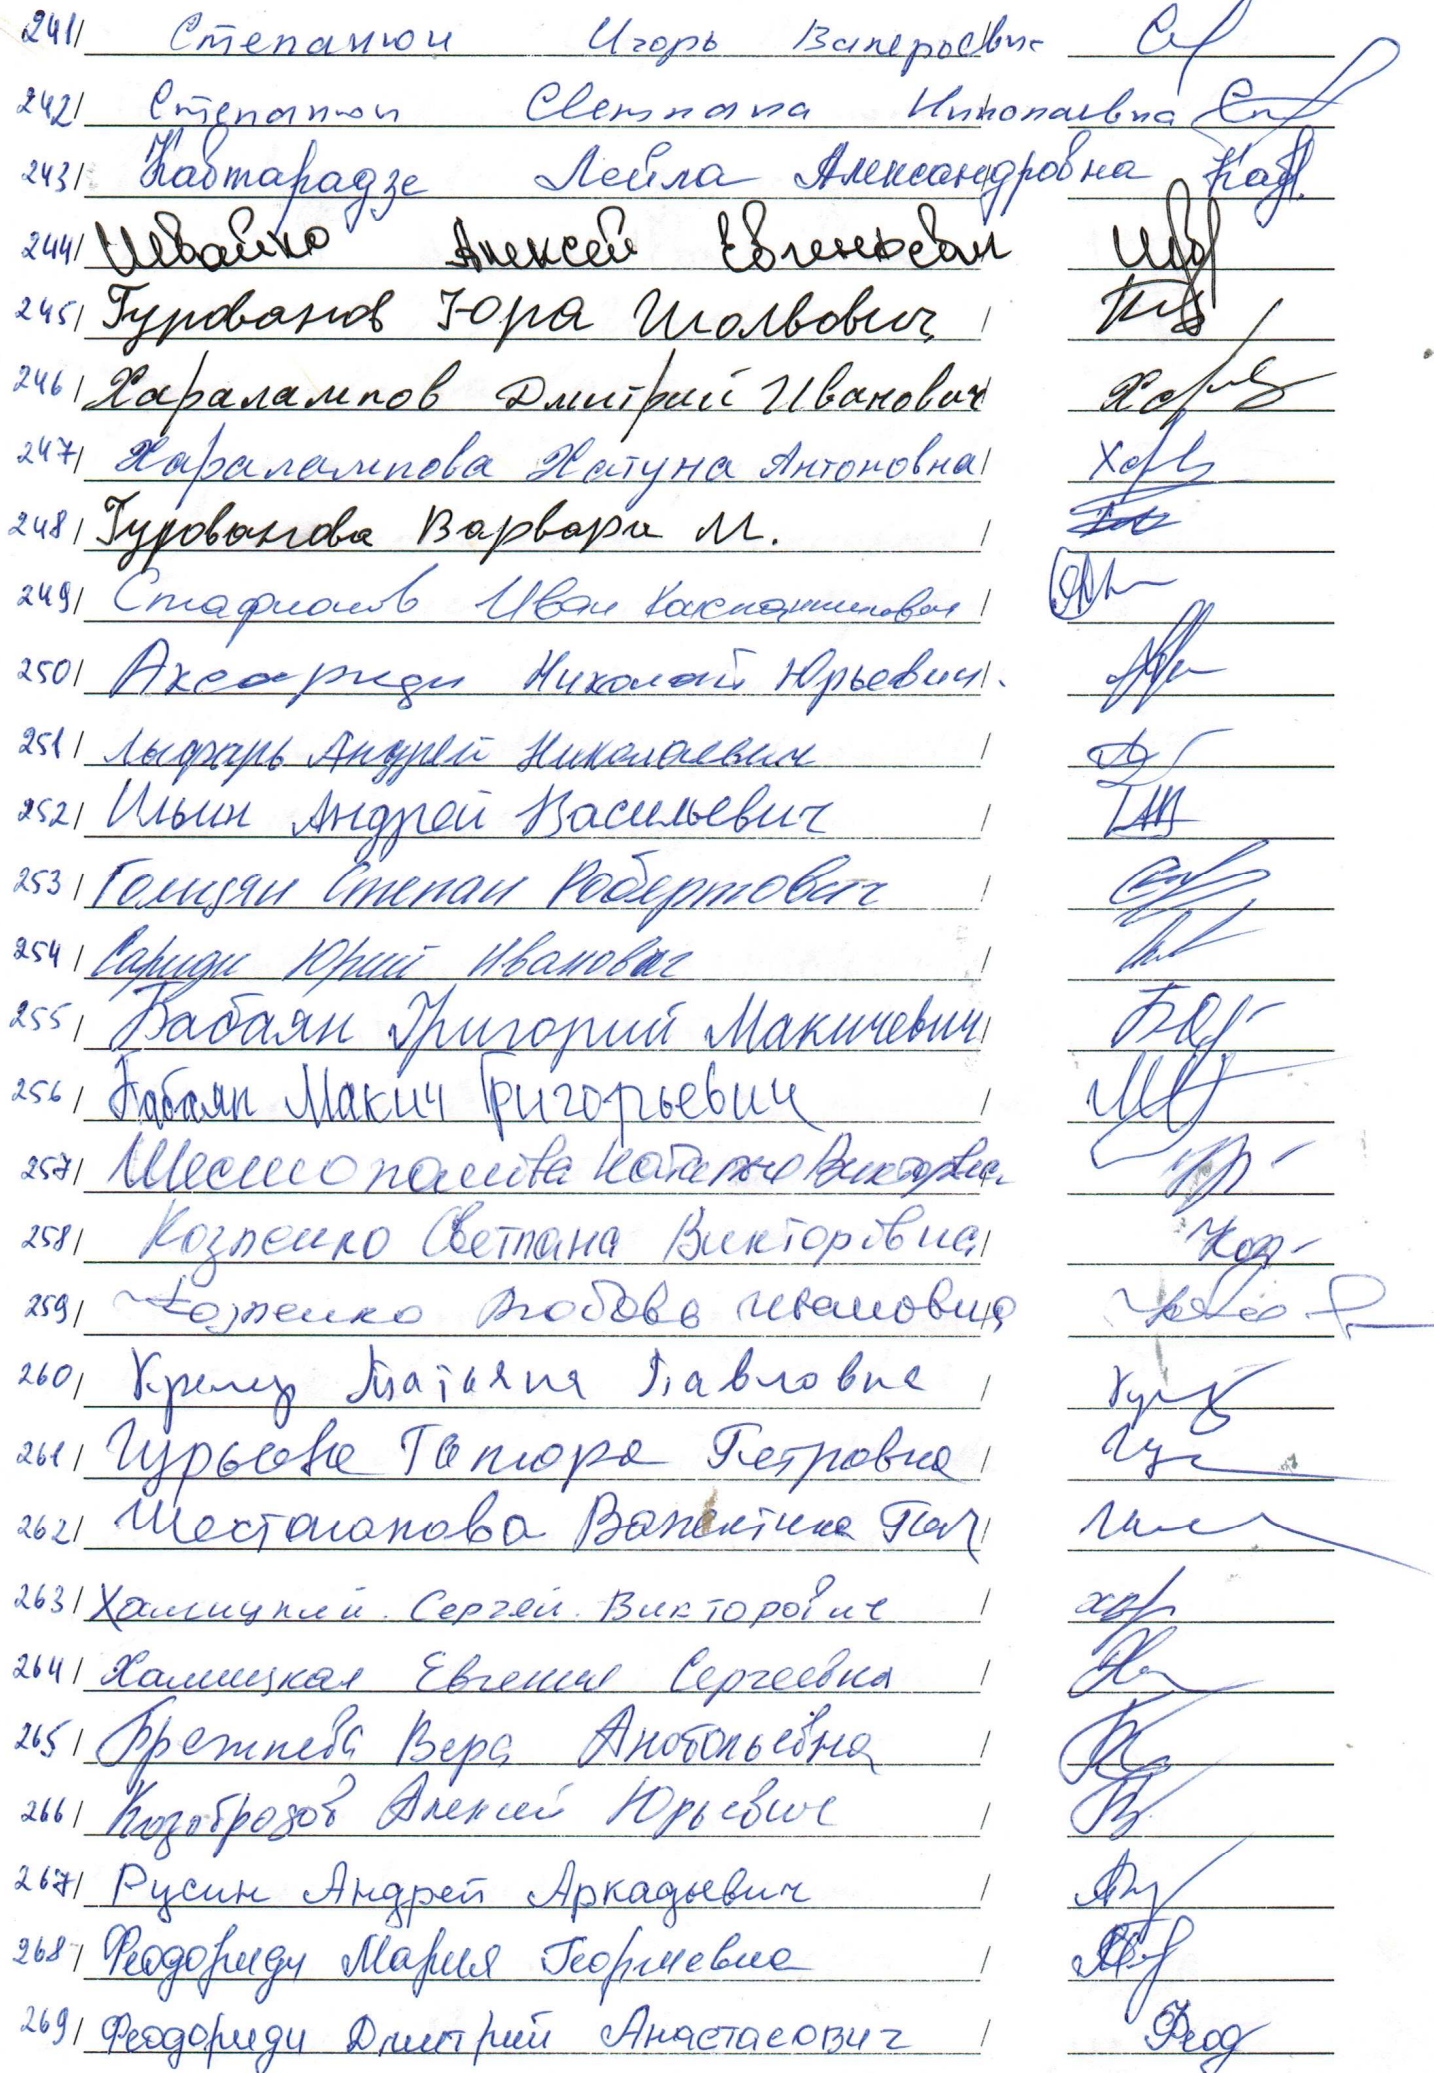 241/ Степанюк Игорь Валерьевич
242/ Степанюк Светлана Николаевна
243/ Кавтарадзе Лейла Александровна Кавт.
244/ Швайко Алексей Евгеньевич
245/ Гурованов Юра Шолвович /
246/ Харалампов Дмитрий Иванович
247/ Хараламлова Хатуна Антоновна /
248/ Гурованова Варвара М. /
249/ Стафионов Иван Константинович /
250/ Аксариди Николай Юрьевич /
251/ Лыфарь Андрей Николаевич /
252/ Ильин Андрей Васильевич /
253/ Голицян Степан Робертович /
254/ Сариди Юрий Иванович /
255/ Бабаян Григорий Макичевич /
256/ Бабаян Макич Григорьевич /
257/ Викторовна
258/ Козленко Светлана Викторівна /
259/ Козленко Любовь Ивановна
260/ Татьяна Павловна /
261/ Гурьева Петровна /
262/ Шестопалова Валентина /
263/ Хамицкий Сергей Викторович /
264/ Хамицкая Евгения Сергеевна /
265/ Брежнева Вера Анатольевна /
266/ Алексей Юрьевич /
267/ Русин Андрей Аркадьевич /
268/ Феодориди Мария Георгиевна /
269/ Феодориди Дмитрий Анастасович / Феод